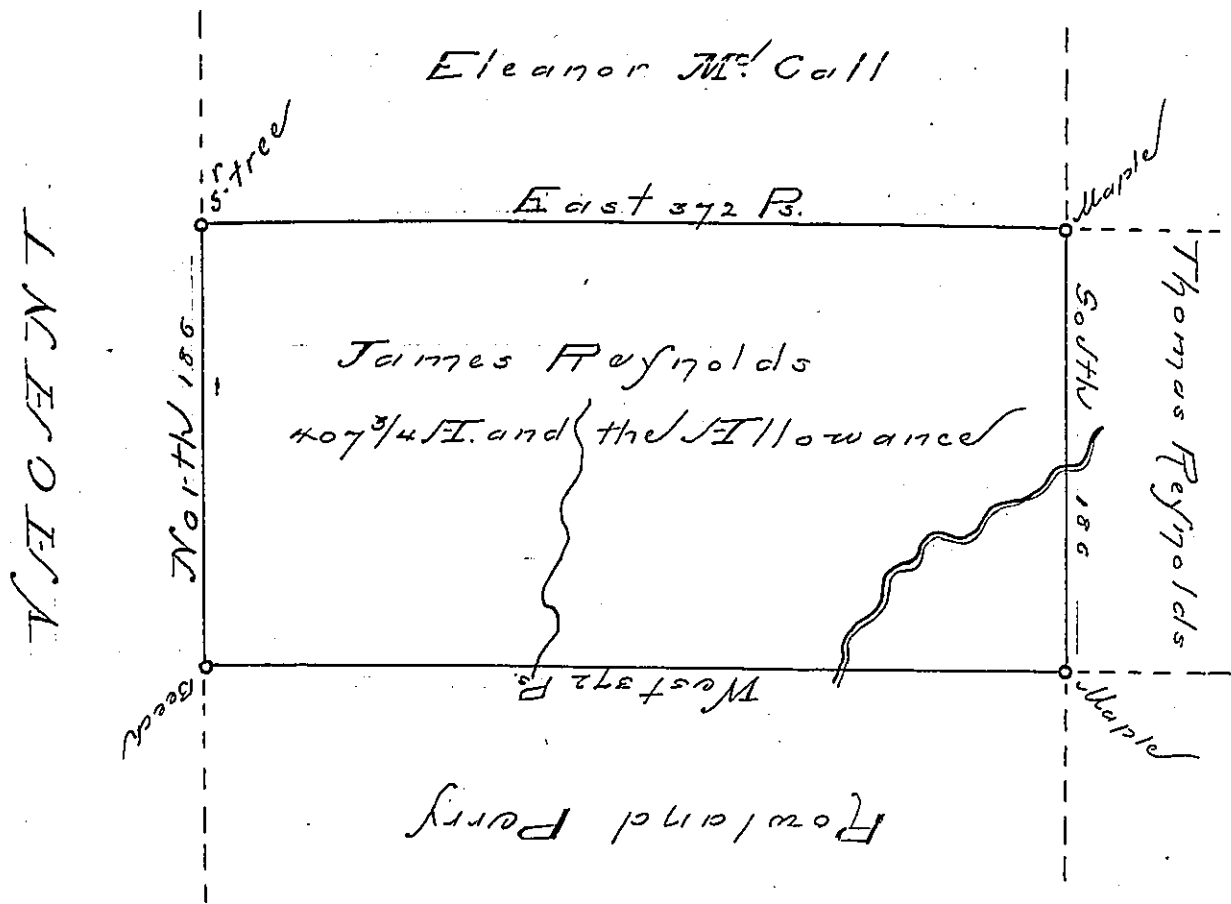 Eleanor Mc. Call
Sr. tree
Maple
East 372 Ps.
VACANT
North 186
James Reynolds
407 3/4 A. and the Allowance
South 186
Thomas Reynolds
West 372 Ps.
Beech
Maple
Rowland Perry